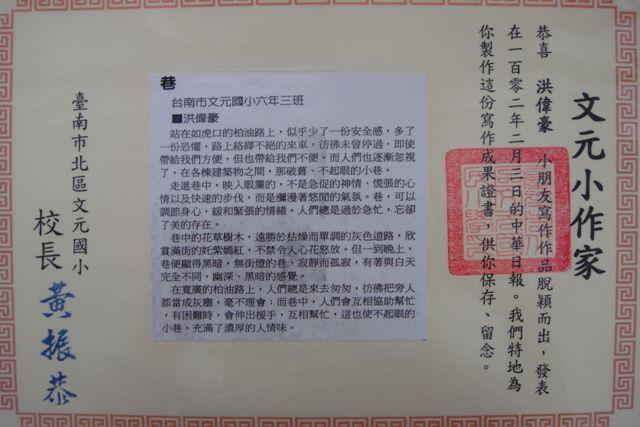 文元小作家
恭喜 洪偉豪 小朋友寫作作品脫穎而出，發表
在一百零二年二月三日的中華日報。我們特地為
你製作這份寫作成果證書，供你保存、留念。
巷
台南市文元國小六年三班
■洪偉豪
站在如虎口的柏油路上，似乎少了一份安全感，多了
一份恐懼，路上絡繹不絕的來車，彷彿未曾停過，即使
帶給我們方便，但也帶給我們不便。而人們也逐漸忽視
了，在各棟建築物之間，那破舊、不起眼的小巷。
走進巷中，映入眼簾的，不是急促的神情、慌張的心
情以及快速的步伐，而是瀰漫著悠閒的氣氛。巷，可以
調節身心，緩和緊張的情緒。人們總是過於急忙，忘卻
了美的存在。
巷中的花草樹木，遠勝於枯燥而單調的灰色道路，欣
賞滿街的奼紫嫣紅，不禁令人心花怒放。但一到晚上，
巷便顯得黑暗，無街燈的巷，寂靜而孤寂，有著與白天
完全不同，幽深、黑暗的感覺。
在寬廣的柏油路上，人們總是來去匆匆，彷彿把旁人
都當成灰塵，毫不理會；而巷中，人們會互相協助幫忙
，有困難時，會伸出援手，互相幫忙，這也使不起眼的
小巷，充滿了濃厚的人情味。
臺南市北區文元國小
校長 黃振恭